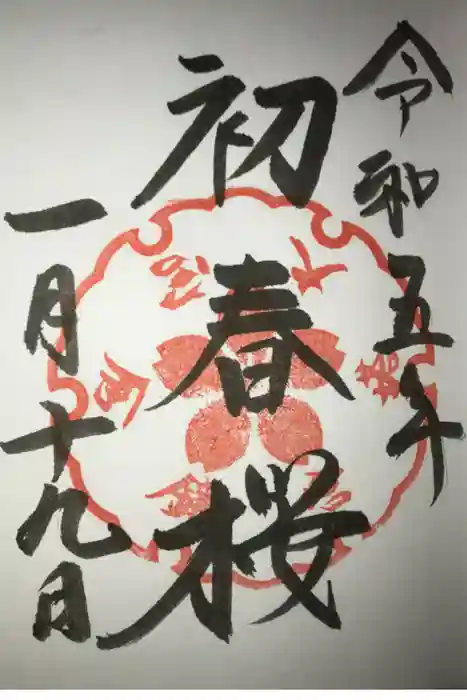 令和五年
初春桜
一月十九日